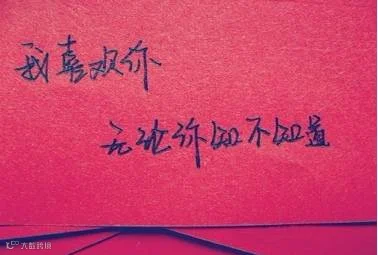 我喜欢你
无论你知不知道
大数跨境